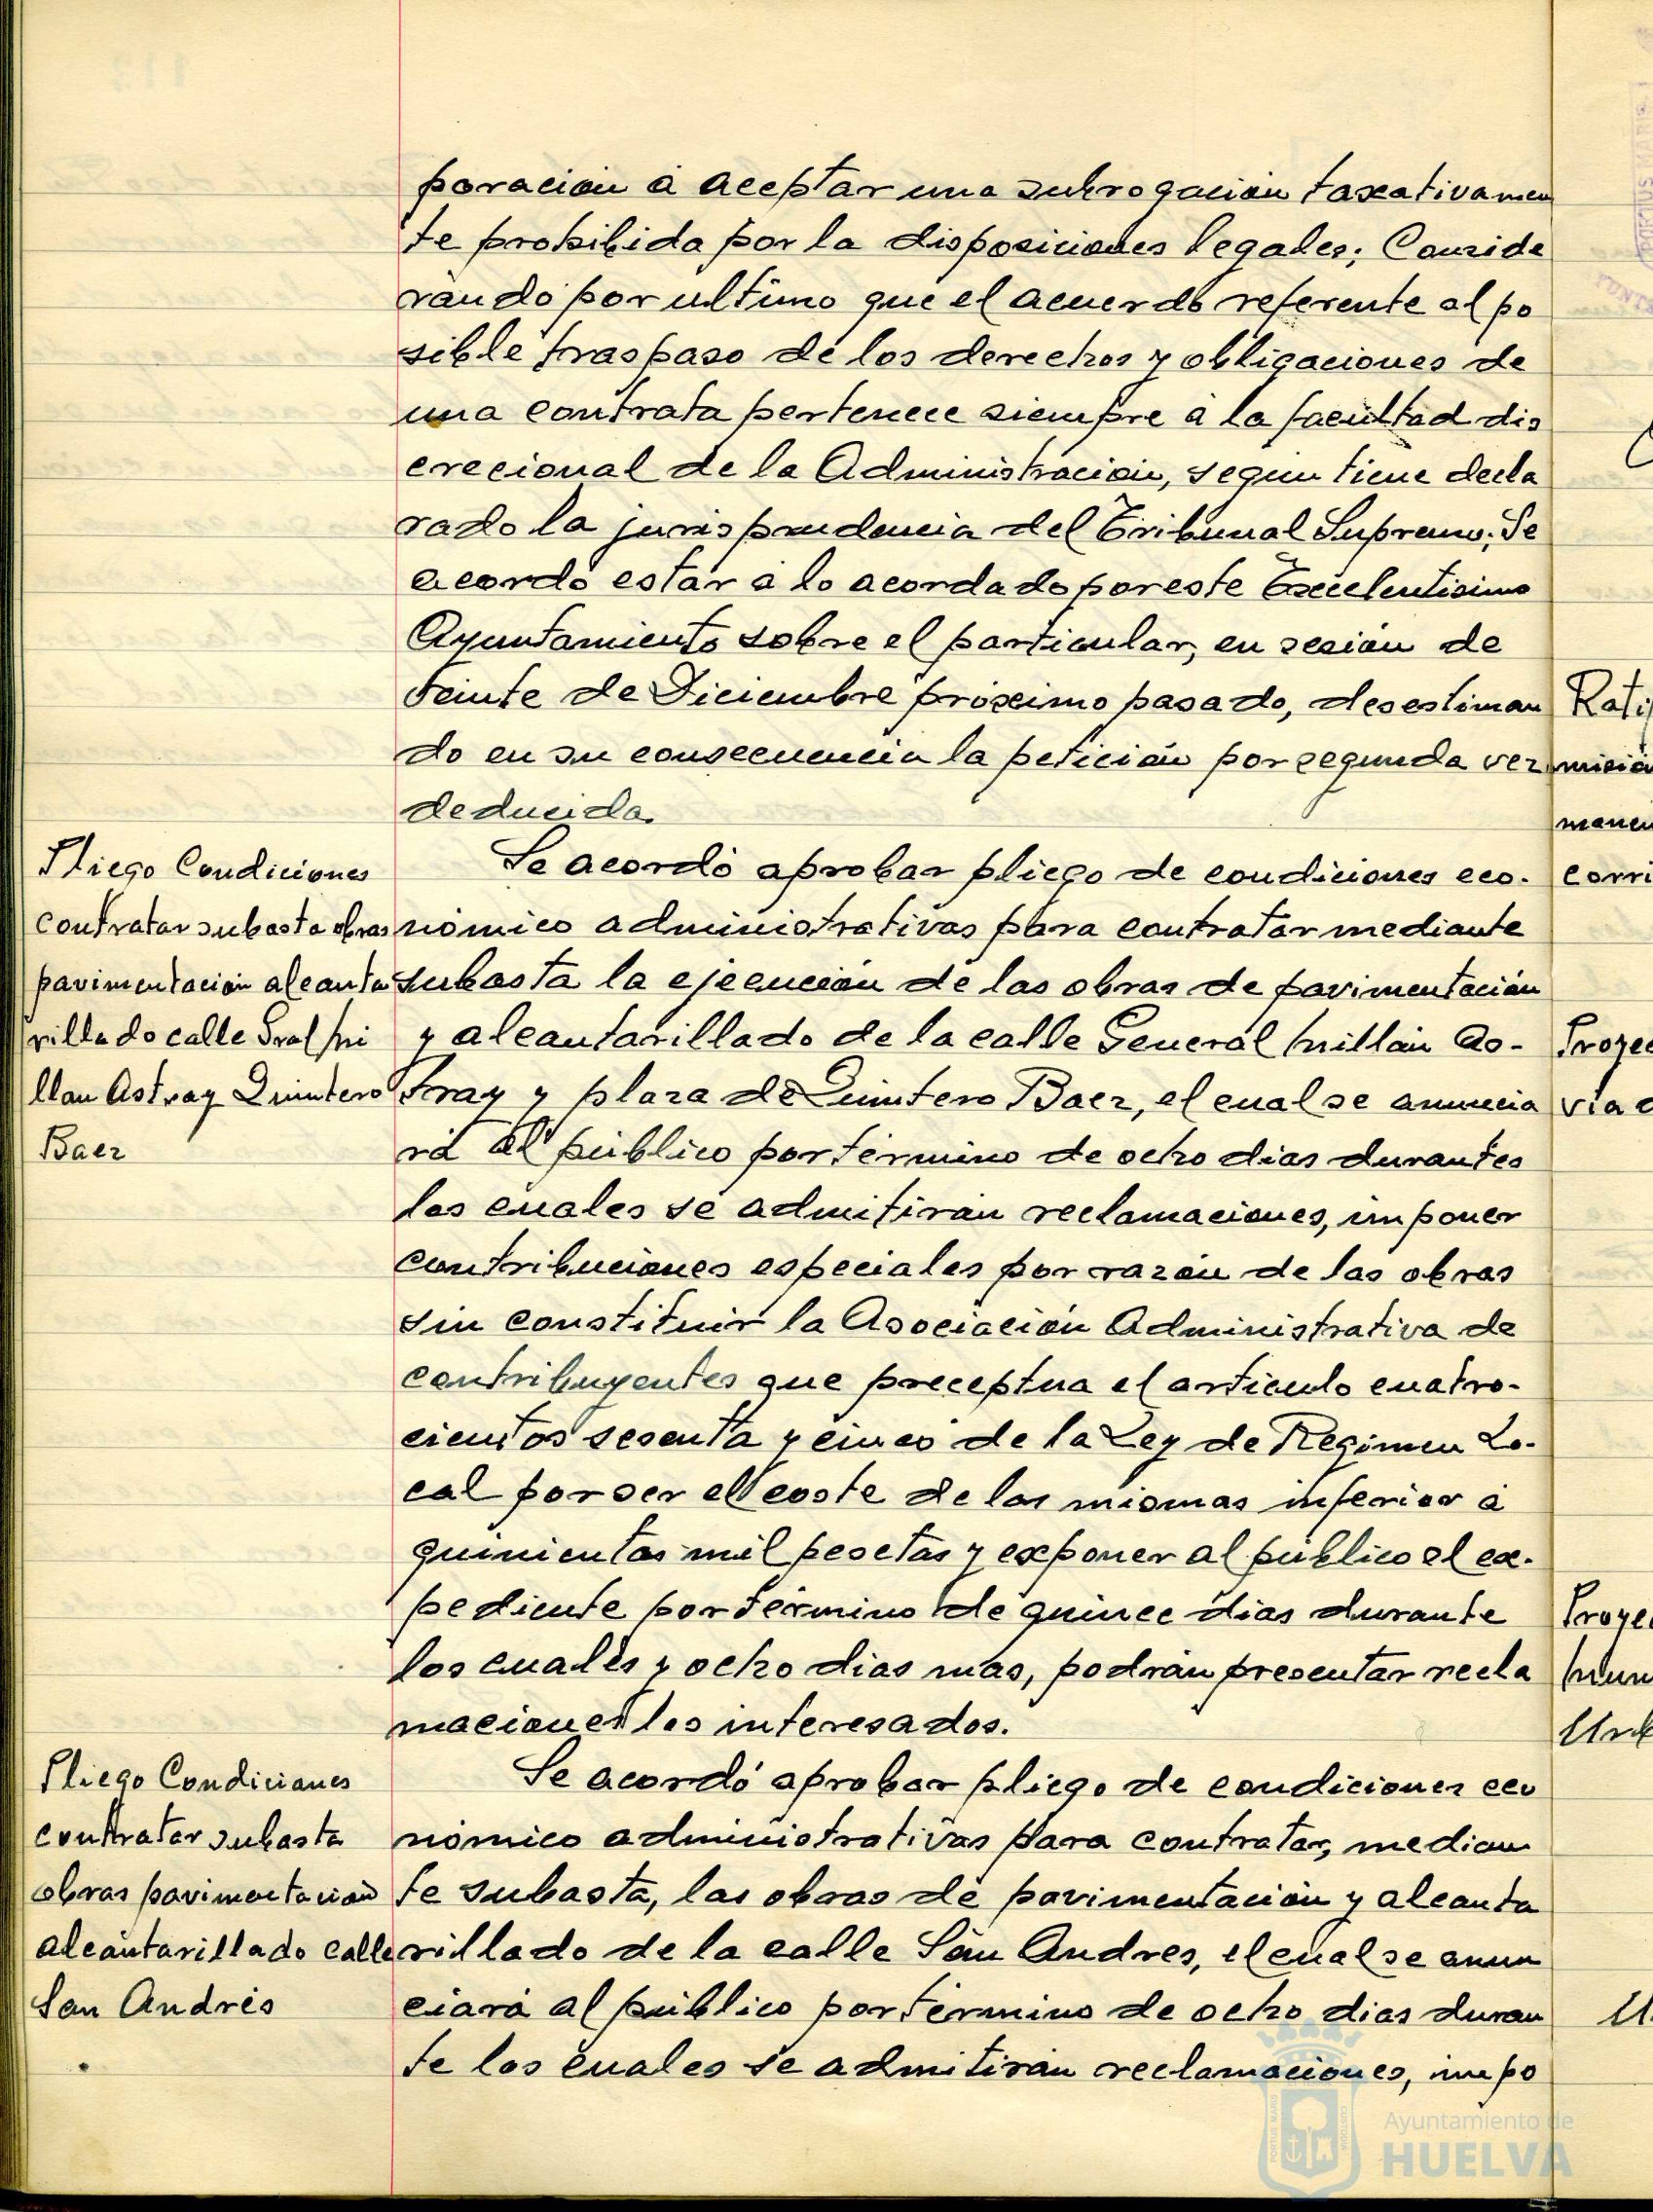 poración á aceptar una subrogación taxativamen
te prohibida por la disposiciones legales; Conside
rando por ultimo que el acuerdo referente al po
sible traspaso de los derechos y obligaciones de
una contrata pertenece siempre á la facultad dis
crecional de la Administración, segun tiene decla
rado la jurisprudencia del Tribunal Supremo; Se
acordó estar á lo acordado por este Excelentisimo
Ayuntamiento sobre el particular, en sesión de
veinte de Diciembre próximo pasado, desestiman
do en su consecuencia la petición por segunda vez
deducida.
Pliego Condiciones
contratar subasta obras
pavimentación alcanta
rillado calle Gral Mi
llan Astray Quintero
Baez
Se acordó aprobar pliego de condiciones eco-
nómico administrativas para contratar mediante
subasta la ejecución de las obras de pavimentación
y alcantarillado de la calle General Millán As-
tray y plaza de Quintero Baez, el cual se anuncia
rá al público por término de ocho dias durantes
los cuales se admitirán reclamaciones, imponer
contribuciones especiales por razón de las obras
sin constituir la Asociación Administrativa de
contribuyentes que preceptua el articulo cuatro-
cientos sesenta y cinco de la Ley de Regimen Lo-
cal por ser el coste de las mismas inferior á
quinientas mil pesetas y exponer al público el ex-
pediente por término de quince dias durante
los cuales y ocho dias mas, podrán presentar recla
maciones los interesados.
Pliego Condiciones
contratar subasta
obras pavimentación
alcantarillado calle
San Andrés
Se acordó aprobar pliego de condiciones eco
nómico administrativas para contratar, median
te subasta, las obras de pavimentación y alcanta
rillado de la calle San Andres, el cual se anun
ciará al público por término de ocho dias duran
te los cuales se admitirán reclamaciones, impo
Rati
misió
manen
corri
Proyec
via
Proyec
Mun
Urb
Ayuntamiento de
HUELVA